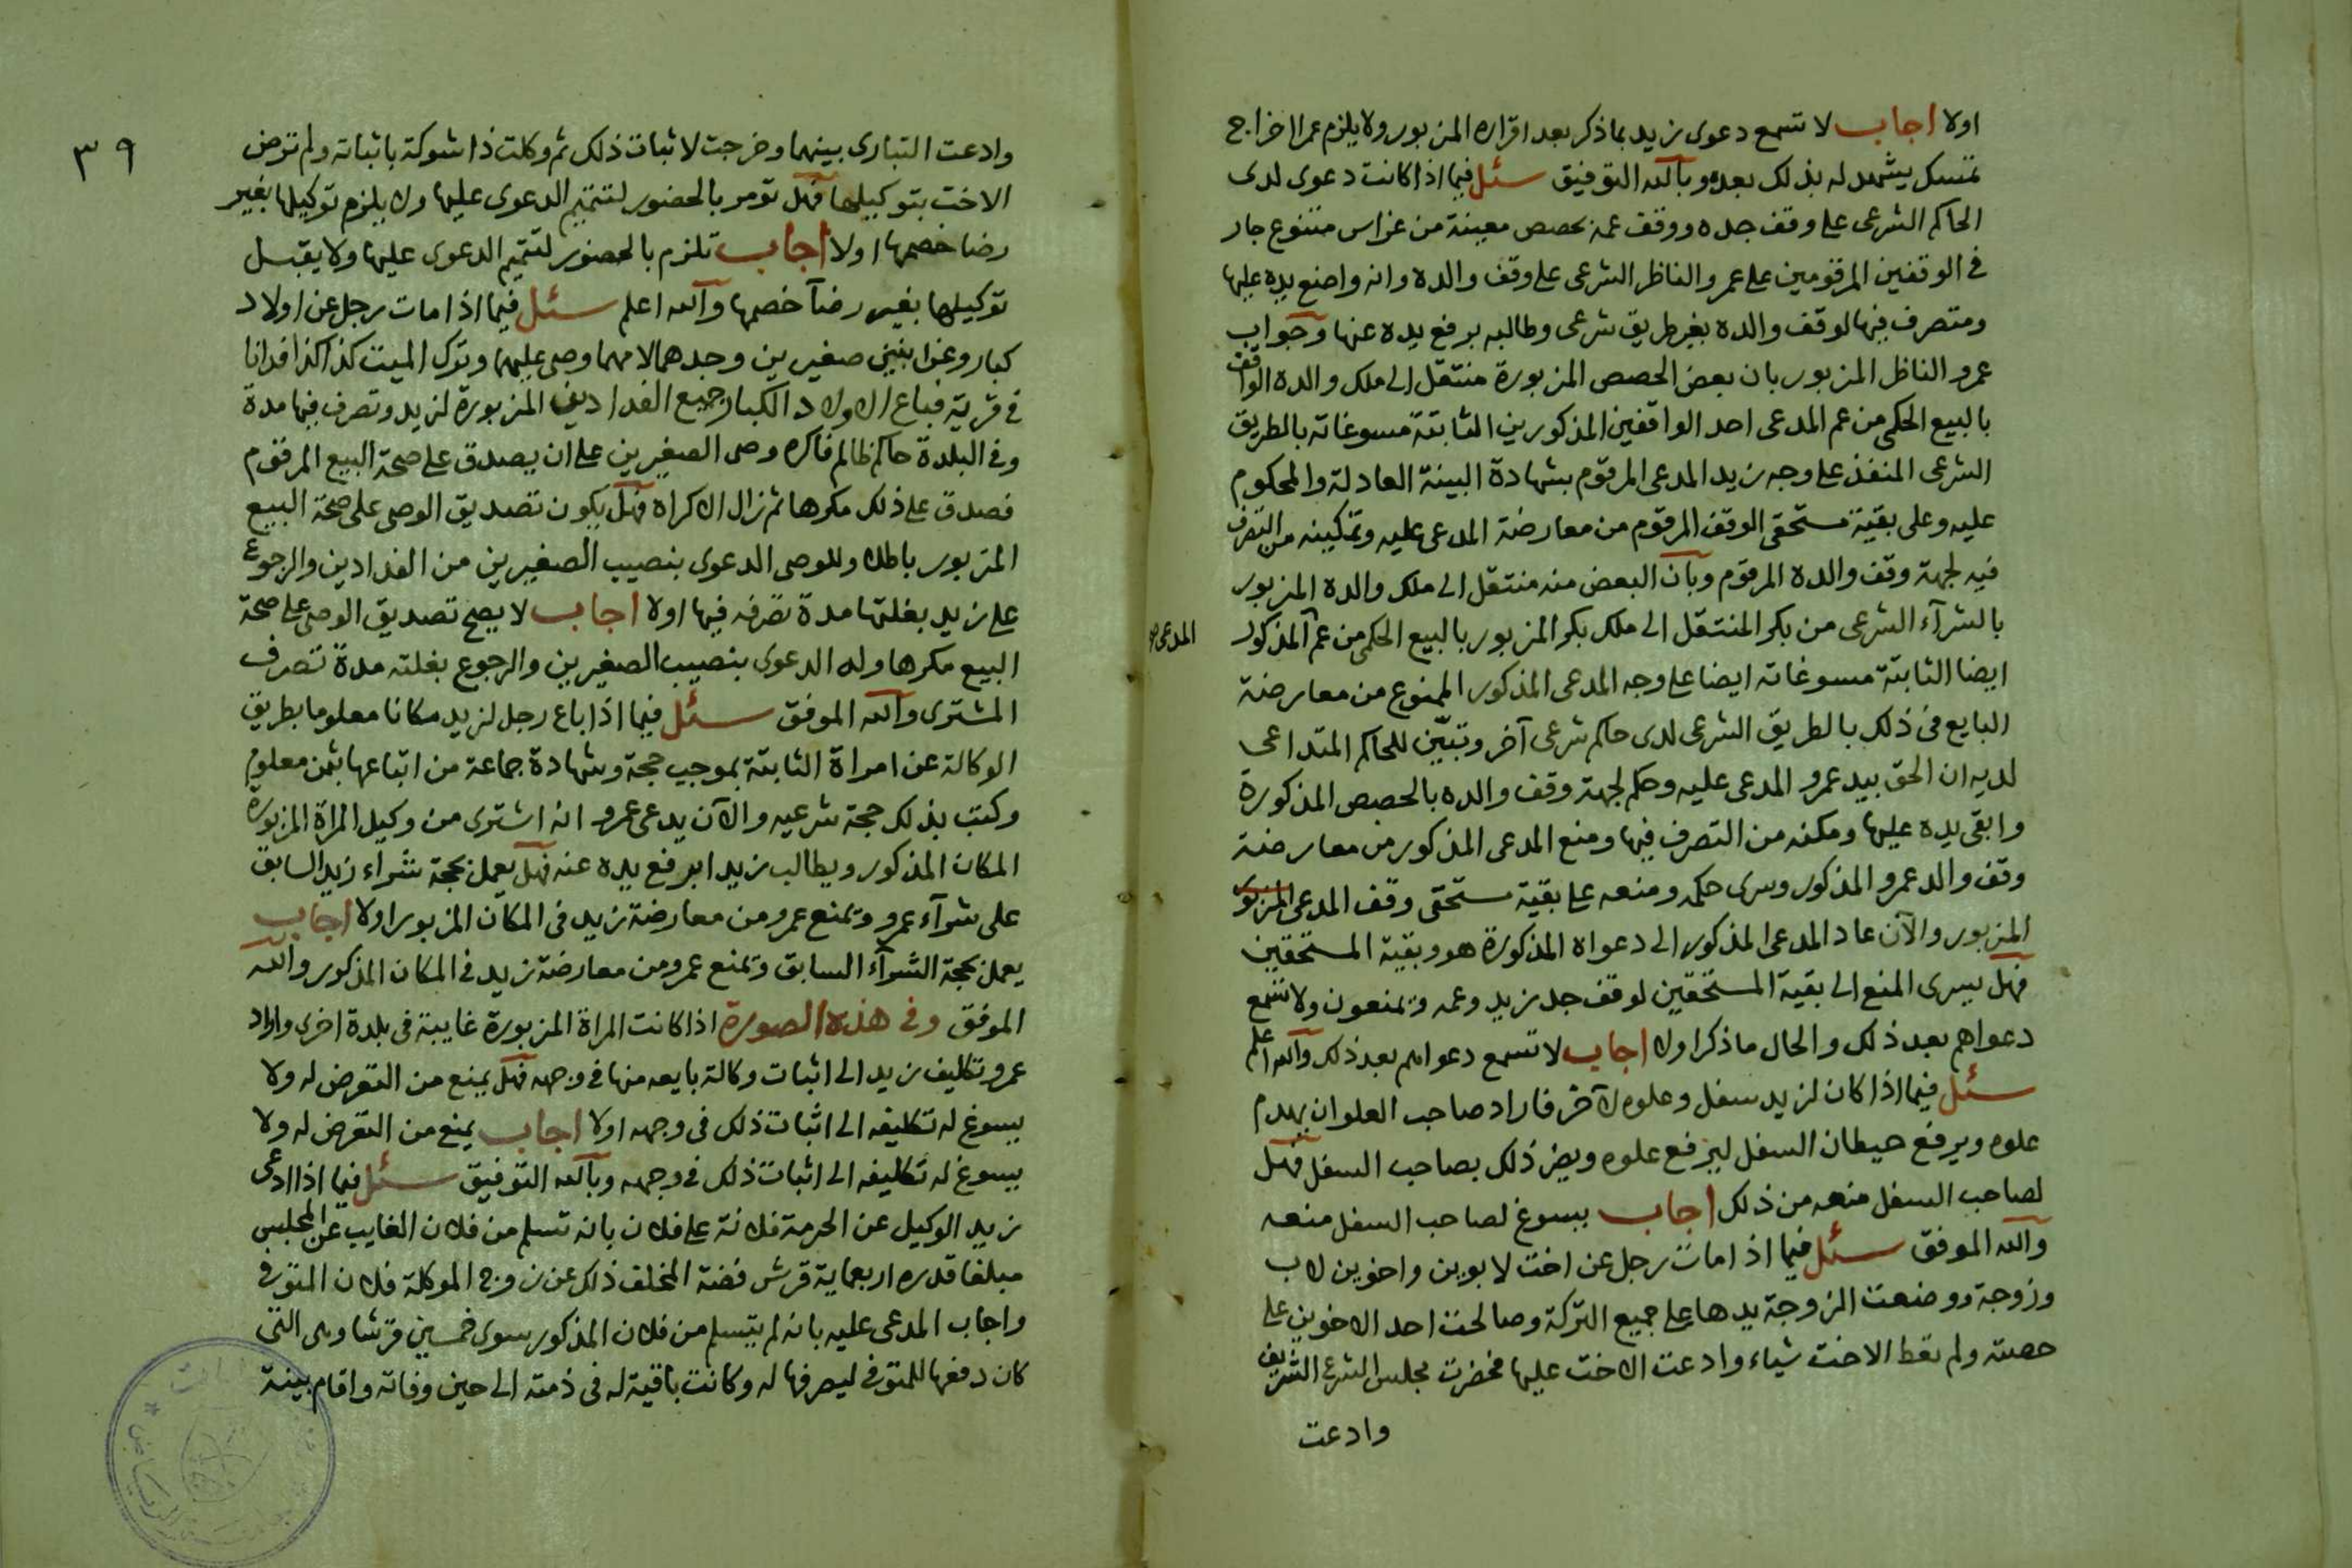 اولا اجاب لا تسمع دعوى زيد بما ذكر بعد اقراره المزبور ولا يلزم عمرا اخراج
تمسك يشهد له بذلك بعده وبالله التوفيق سئل فيما اذا كانت دعوى لدى
الحاكم الشرعى على وقف جده ووقف عمه بحصص معينة من غراس متنوع جار
فى الوقفين المرقومين على عمرو الناظر الشرعى على وقف والده وانه واضع يده عليها
ومتصرف فيها لوقف والده بغير طريق شرعى وطالبه برفع يده عنها وجواب
عمرو الناظر المزبور بان بعض الحصص المزبورة منتقل الى ملك والده الواقف
بالبيع الحكمى من عم المدعى احد الواقفين المذكورين الثابتة مسوغاته بالطريق
الشرعى المنفذ على وجه زيد المدعى المرقوم بشهادة البينة العادلة والمحكوم
عليه وعلى بقية مستحقى الوقف المرقوم من معارضة المدعى عليه وتمكينه من التصرف
فيه لجهة وقف والده المرقوم وبان البعض منه منتقل الى ملك والده المزبور
بالشرآء الشرعى من بكر المنتقل الى ملك بكر المزبور بالبيع الحكمى من عم المذكور
المدعى
ايضا الثابتة مسوغاته ايضا على وجه المدعى المذكور الممنوع من معارضة
البايع فى ذلك بالطريق الشرعى لدى حاكم شرعى آخر وتبيّن للحاكم المتداعى
لديه ان الحق بيد عمرو المدعى عليه وحكم لجهة وقف والده بالحصص المذكورة
وابقى يده عليها ومكنه من التصرف فيها ومنع المدعى المذكور من معارضة
وقف والد عمرو المذكور وسرى حكمه ومنعه على بقية مستحقى وقف المدعى المزبور
المزبور والآن عاد المدعى المذكور الى دعواه المذكورة هو وبقية المستحقين
فهل يسرى المنع الى بقية المستحقين لوقف جد زيد وعمه ويمنعون ولا تسمع
دعواهم بعد ذلك والحال ما ذكر اولا اجاب لا تسمع دعواهم بعد ذلك والله اعلم
سئل فيما اذا كان لزيد سفل وعلوه لآخر فاراد صاحب العلو ان يهدم
علوه ويرفع حيطان السفل ليرفع علوه ويضر ذلك بصاحب السفل فهل
لصاحب السفل منعه من ذلك اجاب يسوغ لصاحب السفل منعه
والله الموفق سئل فيما اذا مات رجل عن اخت لابوين واخوين لاب
وزوجة ووضعت الزوجة يدها على جميع التركة وصالحت احد الاخوين على
حصته ولم تعط الاخت شياء وادعت الاخت عليها فحضرت مجلس الشرع الشريف
وادعت
٣٩
وادعت التبارى بينهما وخرجت لاثبات ذلك ثم وكلت ذا شوكة باثباته ولم ترض
الاخت بتوكيلها فهل تومر بالحضور لتتميم الدعوى عليها ولا يلزم توكيلها بغير
رضا خصمها اولا اجاب تلزم بالحضور لتتميم الدعوى عليها ولا يقبل
توكيلها بغير رضآ خصمها والله اعلم سئل فيما اذا مات رجل عن اولاد
كبار وعن ابنين صغيرين وجدهما لامهما وصى عليهما وترك الميت كذا كذا فدانا
فى قرية فباع الاولاد الكبار جميع الفدادين المزبورة لزيد وتصرف فيها مدة
وفى البلدة حاكم ظالم فاكره وصى الصغيرين على ان يصدق على صحة البيع المرقوم
فصدق على ذلك مكرها ثم زال الاكراه فهل يكون تصديق الوصى على صحة البيع
المزبور باطلا وللوصى الدعوى بنصيب الصغيرين من الفدادين والرجوع
على زيد بغلتها مدة تصرفه فيها اولا اجاب لا يصح تصديق الوصى على صحة
البيع مكرها وله الدعوى بنصيب الصغيرين والرجوع بغلته مدة تصرف
المشترى والله الموفق سئل فيما اذا باع رجل لزيد مكانا معلوما بطريق
الوكالة عن امراة الثابتة بموجب حجة وشهادة جماعة من اتباعها بثمن معلوم
وكتب بذلك حجة شرعيه والآن يدعى عمرو انه اشترى من وكيل المراة المزبورة
المكان المذكور ويطالب زيدا برفع يده عنه فهل يعمل بحجة شراء زيد السابق
على شرآء عمرو ويمنع عمرو من معارضة زيد فى المكان المزبور اولا اجاب
يعمل بحجة الشرآء السابق ويمنع عمرو من معارضة زيد فى المكان المذكور والله
الموفق وفى هذه الصورة اذا كانت المراة المزبورة غايبة فى بلدة اخرى واراد
عمرو تكليف زيد الى اثبات وكالة بايعه منها فى وجهه فهل يمنع من التعرض له ولا
يسوغ له تكليفه الى اثبات ذلك فى وجهه اولا اجاب يمنع من التعرض له ولا
يسوغ له تكليفه الى اثبات ذلك فى وجهه وبالله التوفيق سئل فيما اذا ادعى
زيد الوكيل عن الحرمة فلانة على فلان بانه تسلم من فلان الغايب عن المجلس
مبلغا قدره اربعماية قرش فضة المخلف ذلك عن زوج الموكلة فلان المتوفى
واجاب المدعى عليه بانه لم يتسلم من فلان المذكور سوى خمسين قرشا وهى التى
كان دفعها للمتوفى ليصرفها له وكانت باقية له فى ذمته الى حين وفاته واقام بينة